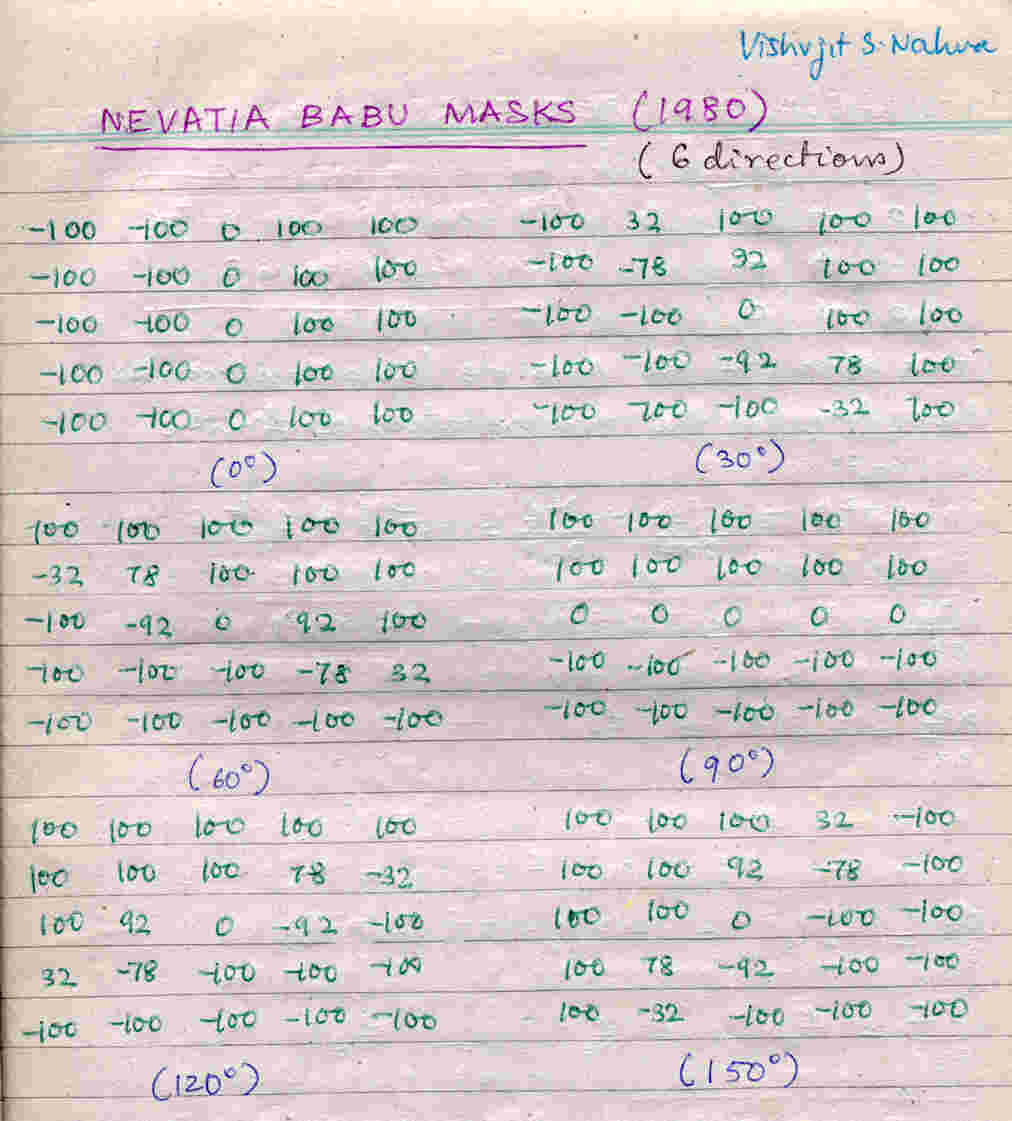 Vishvjit S. Nalwa
NEVATIA BABU MASKS (1980)
(6 directions)
-100 -100 0 100 100 -100 32 100 100 100
-100 -100 0 100 100 -100 -78 92 100 100
-100 -100 0 100 100 -100 -100 0 100 100
-100 -100 0 100 100 -100 -100 -92 78 100
-100 -100 0 100 100 -100 -100 -100 -32 100
(0°) (30°)
100 100 100 100 100 100 100 100 100 100
-32 78 100 100 100 100 100 100 100 100
-100 -92 0 92 100 0 0 0 0 0
-100 -100 -100 -78 32 -100 -100 -100 -100 -100
-100 -100 -100 -100 -100 -100 -100 -100 -100 -100
(60°) (90°)
100 100 100 100 100 100 100 100 32 -100
100 100 100 78 -32 100 100 92 -78 -100
100 92 0 -92 -100 100 100 0 -100 -100
32 -78 -100 -100 -100 100 78 -92 -100 -100
-100 -100 -100 -100 -100 100 -32 -100 -100 -100
(120°) (150°)